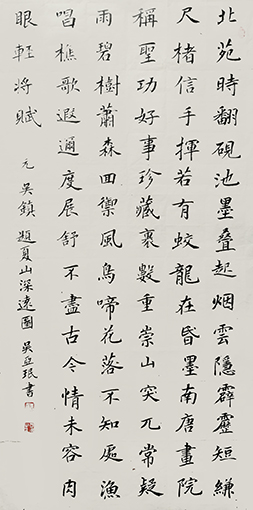 北苑時翻硯池墨疊起烟雲隱霹靂短縑
尺楮信手揮若有蛟龍在昏墨南唐畫院
稱聖功好事珍藏裹數重崇山突兀常疑
雨碧樹蕭森四禦風鳥啼花落不知處漁
唱樵歌遐邇度展舒不盡古今情未容肉
眼輕將賦 元 吳鎮 題夏山深遠圖 吳丘珉書